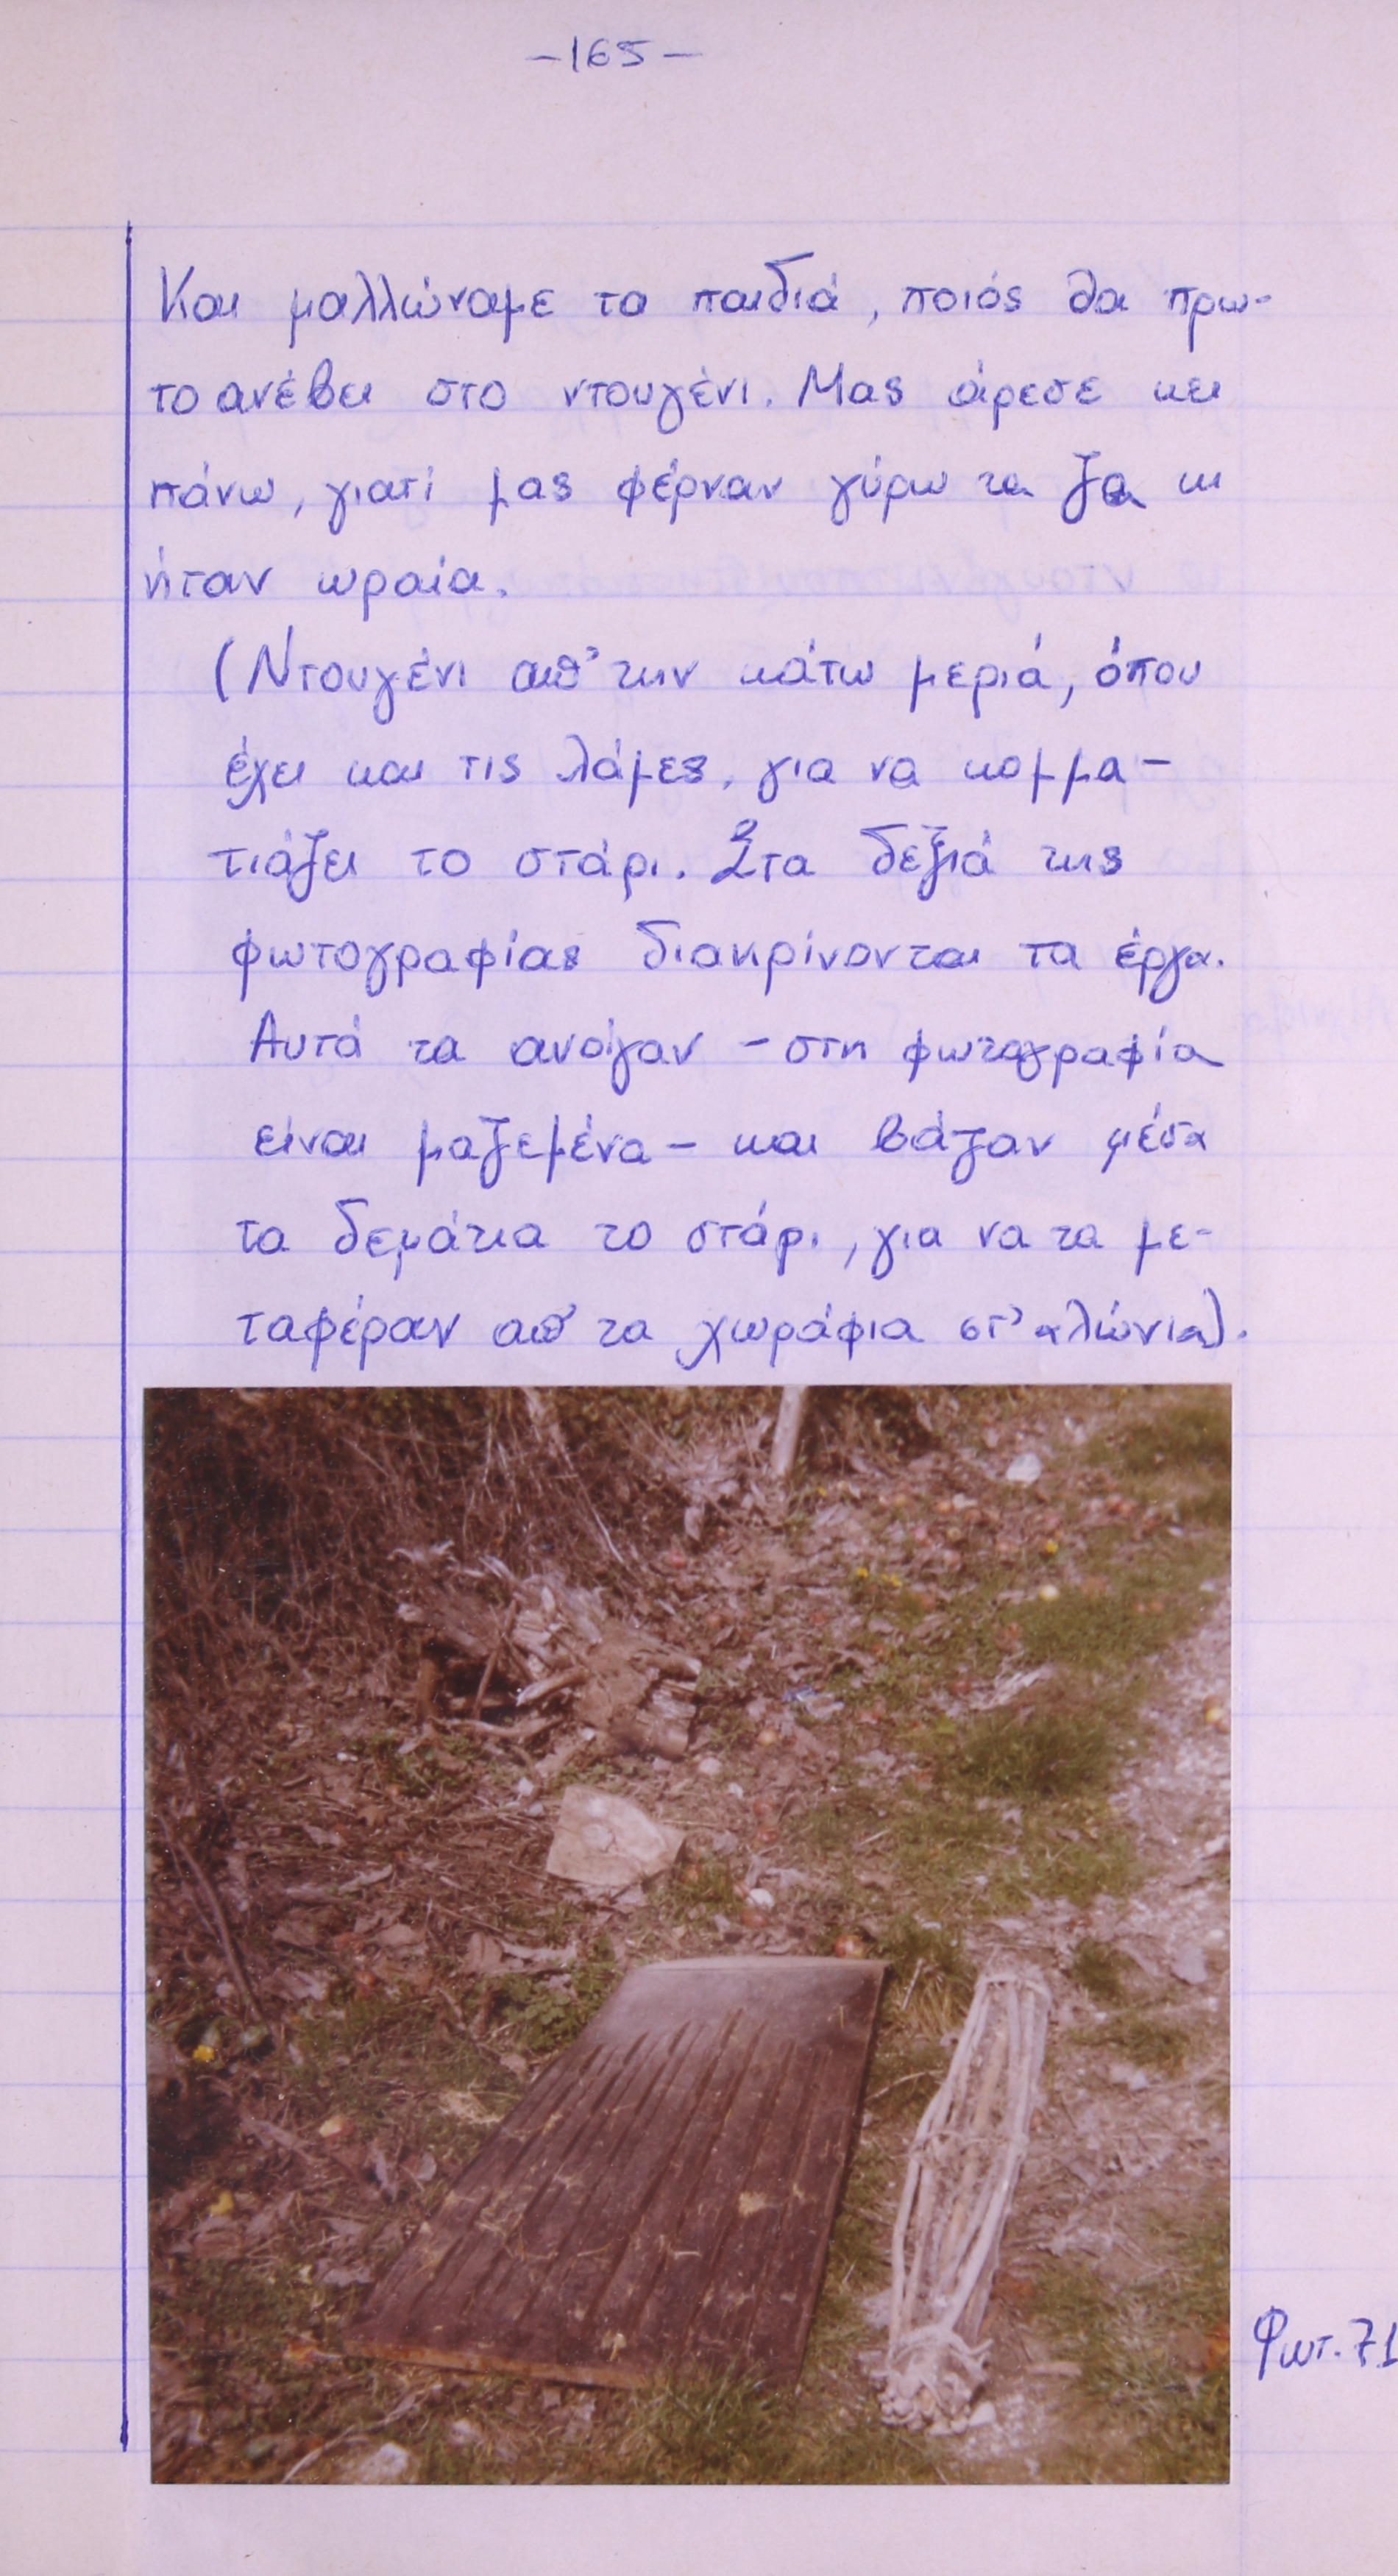 -165-
Και μαλλώναμε τα παιδιά, ποιός θα πρω-
το ανέβει στο ντουγένι. Μας άρεσε κει
πάνω, γιατί μας φέρναν γύρω τα ζα κι
ήταν ωραία.
(Ντουγένι απ' την κάτω μεριά, όπου
έχει και τις λάμες, για να κομμα-
τιάζει το στάρι. Στα δεξιά της
φωτογραφίας διακρίνονται τα έργα.
Αυτά τα ανοίγαν - στη φωτογραφία
είναι μαζεμένα - και βάζαν μέσα
τα δεμάτια το στάρι, για να τα με-
ταφέραν απ' τα χωράφια στ' αλώνια).
Φωτ. 71